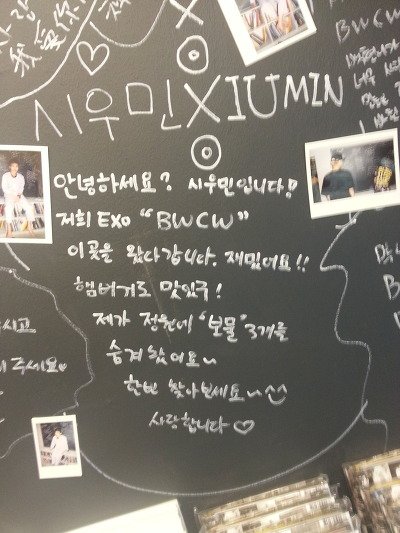 시우민XIUMIN
안녕하세요? 시우민입니다!
저희 EXO "BWCW"
이곳을 왔다갑니다. 재밌어요!!
햄버거도 맛있구!
제가 정원에 "보물" 3개를
숨겨놨어요~
한번 찾아보세요~^^
사랑합니다♡
BWCW
주세요♡